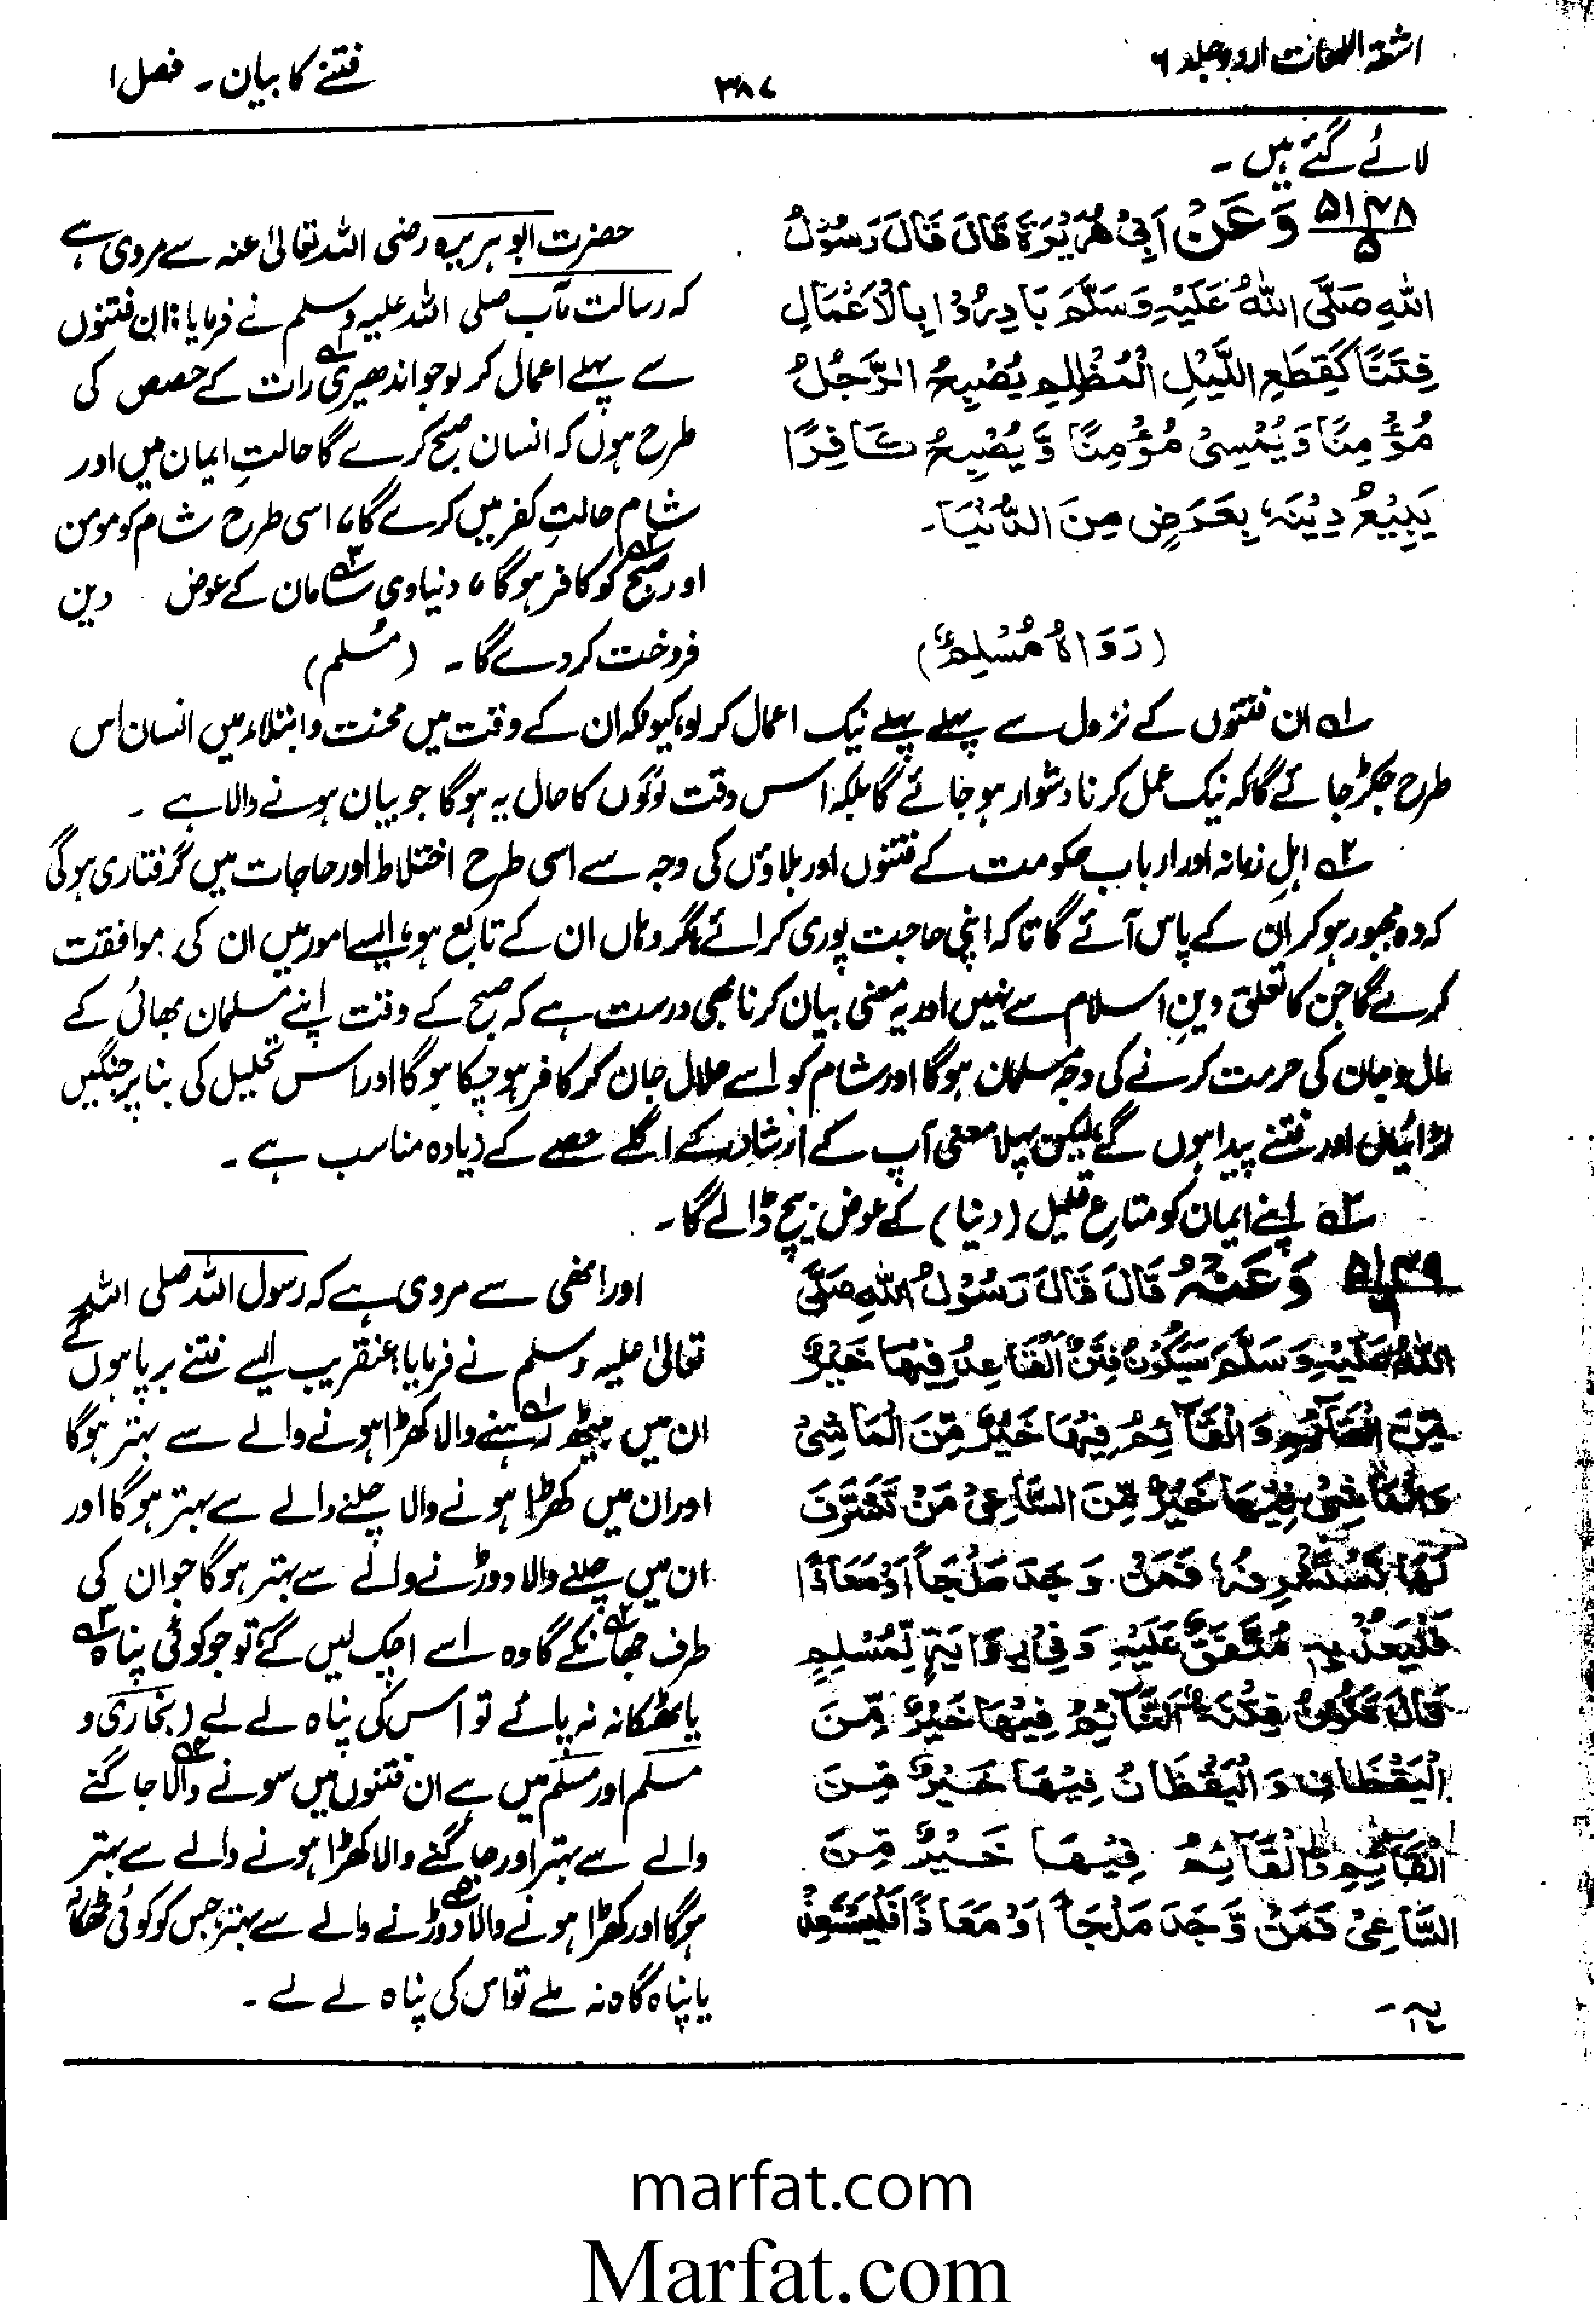 اشعۃ اللمعات اردو جلد ۶
۳۸۷
فتنے کا بیان ۔ فصل ۱
لائے گئے ہیں ۔
۵۱۴۸
۵
وَعَنْ اَبِیْ هُرَیْرَةَ قَالَ قَالَ رَسُوْلُ
اللّٰهِ صَلَّی اللّٰهُ عَلَیْهِ وَسَلَّمَ بَادِرُوْا بِالْاَعْمَالِ
فِتَنًا كَقِطَعِ اللَّیْلِ الْمُظْلِمِ یُصْبِحُ الرَّجُلُ
مُؤْمِنًا وَیُمْسِیْ مُؤْمِنًا وَّیُصْبِحُ كَافِرًا
یَبِیْعُ دِیْنَهٗ بِعَرَضٍ مِنَ الدُّنْیَا۔
(رَوَاهُ مُسْلِمٌ)
حضرت ابو ہریرہ رضی اللہ تعالیٰ عنہ سے مروی ہے
کہ رسالت مآب صلی اللہ علیہ وسلم نے فرمایا: ان فتنوں
سے پہلے اعمال کر لو جو اندھیری رات کے حصص کی
طرح ہوں کہ انسان صبح کرے گا حالتِ ایمان میں اور
شام حالتِ کفر میں کرے گا، اسی طرح شام کو مومن
اور صبح کو کافر ہوگا، دنیاوی سامان کے عوض دین
فروخت کر دے گا ۔ (مُسلم)
۱؎ ان فتنوں کے نزول سے پہلے پہلے نیک اعمال کر لو، کیونکہ ان کے وقت میں محنت و ابتلاء میں انسان اس
طرح جکڑ جائے گا کہ نیک عمل کرنا دشوار ہو جائے گا بلکہ اس وقت لوگوں کا حال یہ ہوگا جو بیان ہونے والا ہے ۔
۲؎ اہلِ زمانہ اور اربابِ حکومت کے فتنوں اور بلاؤں کی وجہ سے اسی طرح اختلاط اور حاجات میں گرفتاری ہوگی
کہ وہ مجبور ہو کر ان کے پاس آئے گا تاکہ اپنی حاجت پوری کرائے مگر وہاں ان کے تابع ہو، ایسے امور میں ان کی موافقت
کرے گا جن کا تعلق دینِ اسلام سے نہیں اور یہ معنی بیان کرنا بھی درست ہے کہ صبح کے وقت اپنے مسلمان بھائی کے
مال و جان کی حرمت کرنے کی وجہ مسلمان ہوگا اور شام کو اسے حلال جان کر کافر ہو چکا ہوگا اور اس تحلیل کی بنا پر جنگیں
لڑائیاں اور فتنے پیدا ہوں گے لیکن پہلا معنی آپ کے ارشاد کے اگلے حصے کے زیادہ مناسب ہے ۔
۳؎ اپنے ایمان کو متاعِ قلیل (دنیا) کے عوض بیچ ڈالے گا ۔
۵۱۴۹
وَعَنْهُ قَالَ قَالَ رَسُوْلُ اللّٰهِ صَلَّی
اللّٰهُ عَلَیْهِ وَسَلَّمَ سَیَكُوْنُ فِتَنٌ اَلْقَاعِدُ فِیْهَا خَیْرٌ
مِّنَ الْقَآئِمِ وَالْقَآئِمُ فِیْهَا خَیْرٌ مِّنَ الْمَاشِیْ
وَالْمَاشِیْ فِیْهَا خَیْرٌ مِّنَ السَّاعِیْ مَنْ تَشَرَّفَ
لَهَا تَسْتَشْرِفْهُ فَمَنْ وَجَدَ مَلْجَاً اَوْ مَعَاذًا
فَلْیَعُذْ بِهٖ مُتَّفَقٌ عَلَیْهِ وَفِیْ رِوَایَةٍ لِّمُسْلِمٍ
قَالَ تَكُوْنُ فِتْنَةٌ اَلنَّآئِمُ فِیْهَا خَیْرٌ مِّنَ
الْیَقْظَانِ وَالْیَقْظَانُ فِیْهَا خَیْرٌ مِّنَ
الْقَآئِمِ وَالْقَآئِمُ فِیْهَا خَیْرٌ مِّنَ
السَّاعِیْ فَمَنْ وَّجَدَ مَلْجَاً اَوْ مَعَاذًا فَلْیَسْتَعِذْ
بِهٖ ۔
اور انھی سے مروی ہے کہ رسول اللہ صلی اللہ
تعالیٰ علیہ وسلم نے فرمایا، عنقریب ایسے فتنے برپا ہوں گے
ان میں بیٹھ رہنے والا کھڑا ہونے والے سے بہتر ہوگا
اور ان میں کھڑا ہونے والا چلنے والے سے بہتر ہوگا اور
ان میں چلنے والا دوڑنے والے سے بہتر ہوگا جو ان کی
طرف جھانکے گا وہ اسے اچک لیں گے تو جو کوئی پناہ
یا ٹھکانہ نہ پائے تو اس کی پناہ لے لے (بخاری و
مسلم اور مسلم میں ہے ان فتنوں میں سونے والا جاگنے
والے سے بہتر اور جاگنے والا کھڑا ہونے والے سے بہتر
ہوگا اور کھڑا ہونے والا دوڑنے والے سے بہتر، جس کو کوئی ٹھکانہ
یا پناہ گاہ نہ ملے تو اس کی پناہ لے لے ۔
marfat.com
Marfat.com